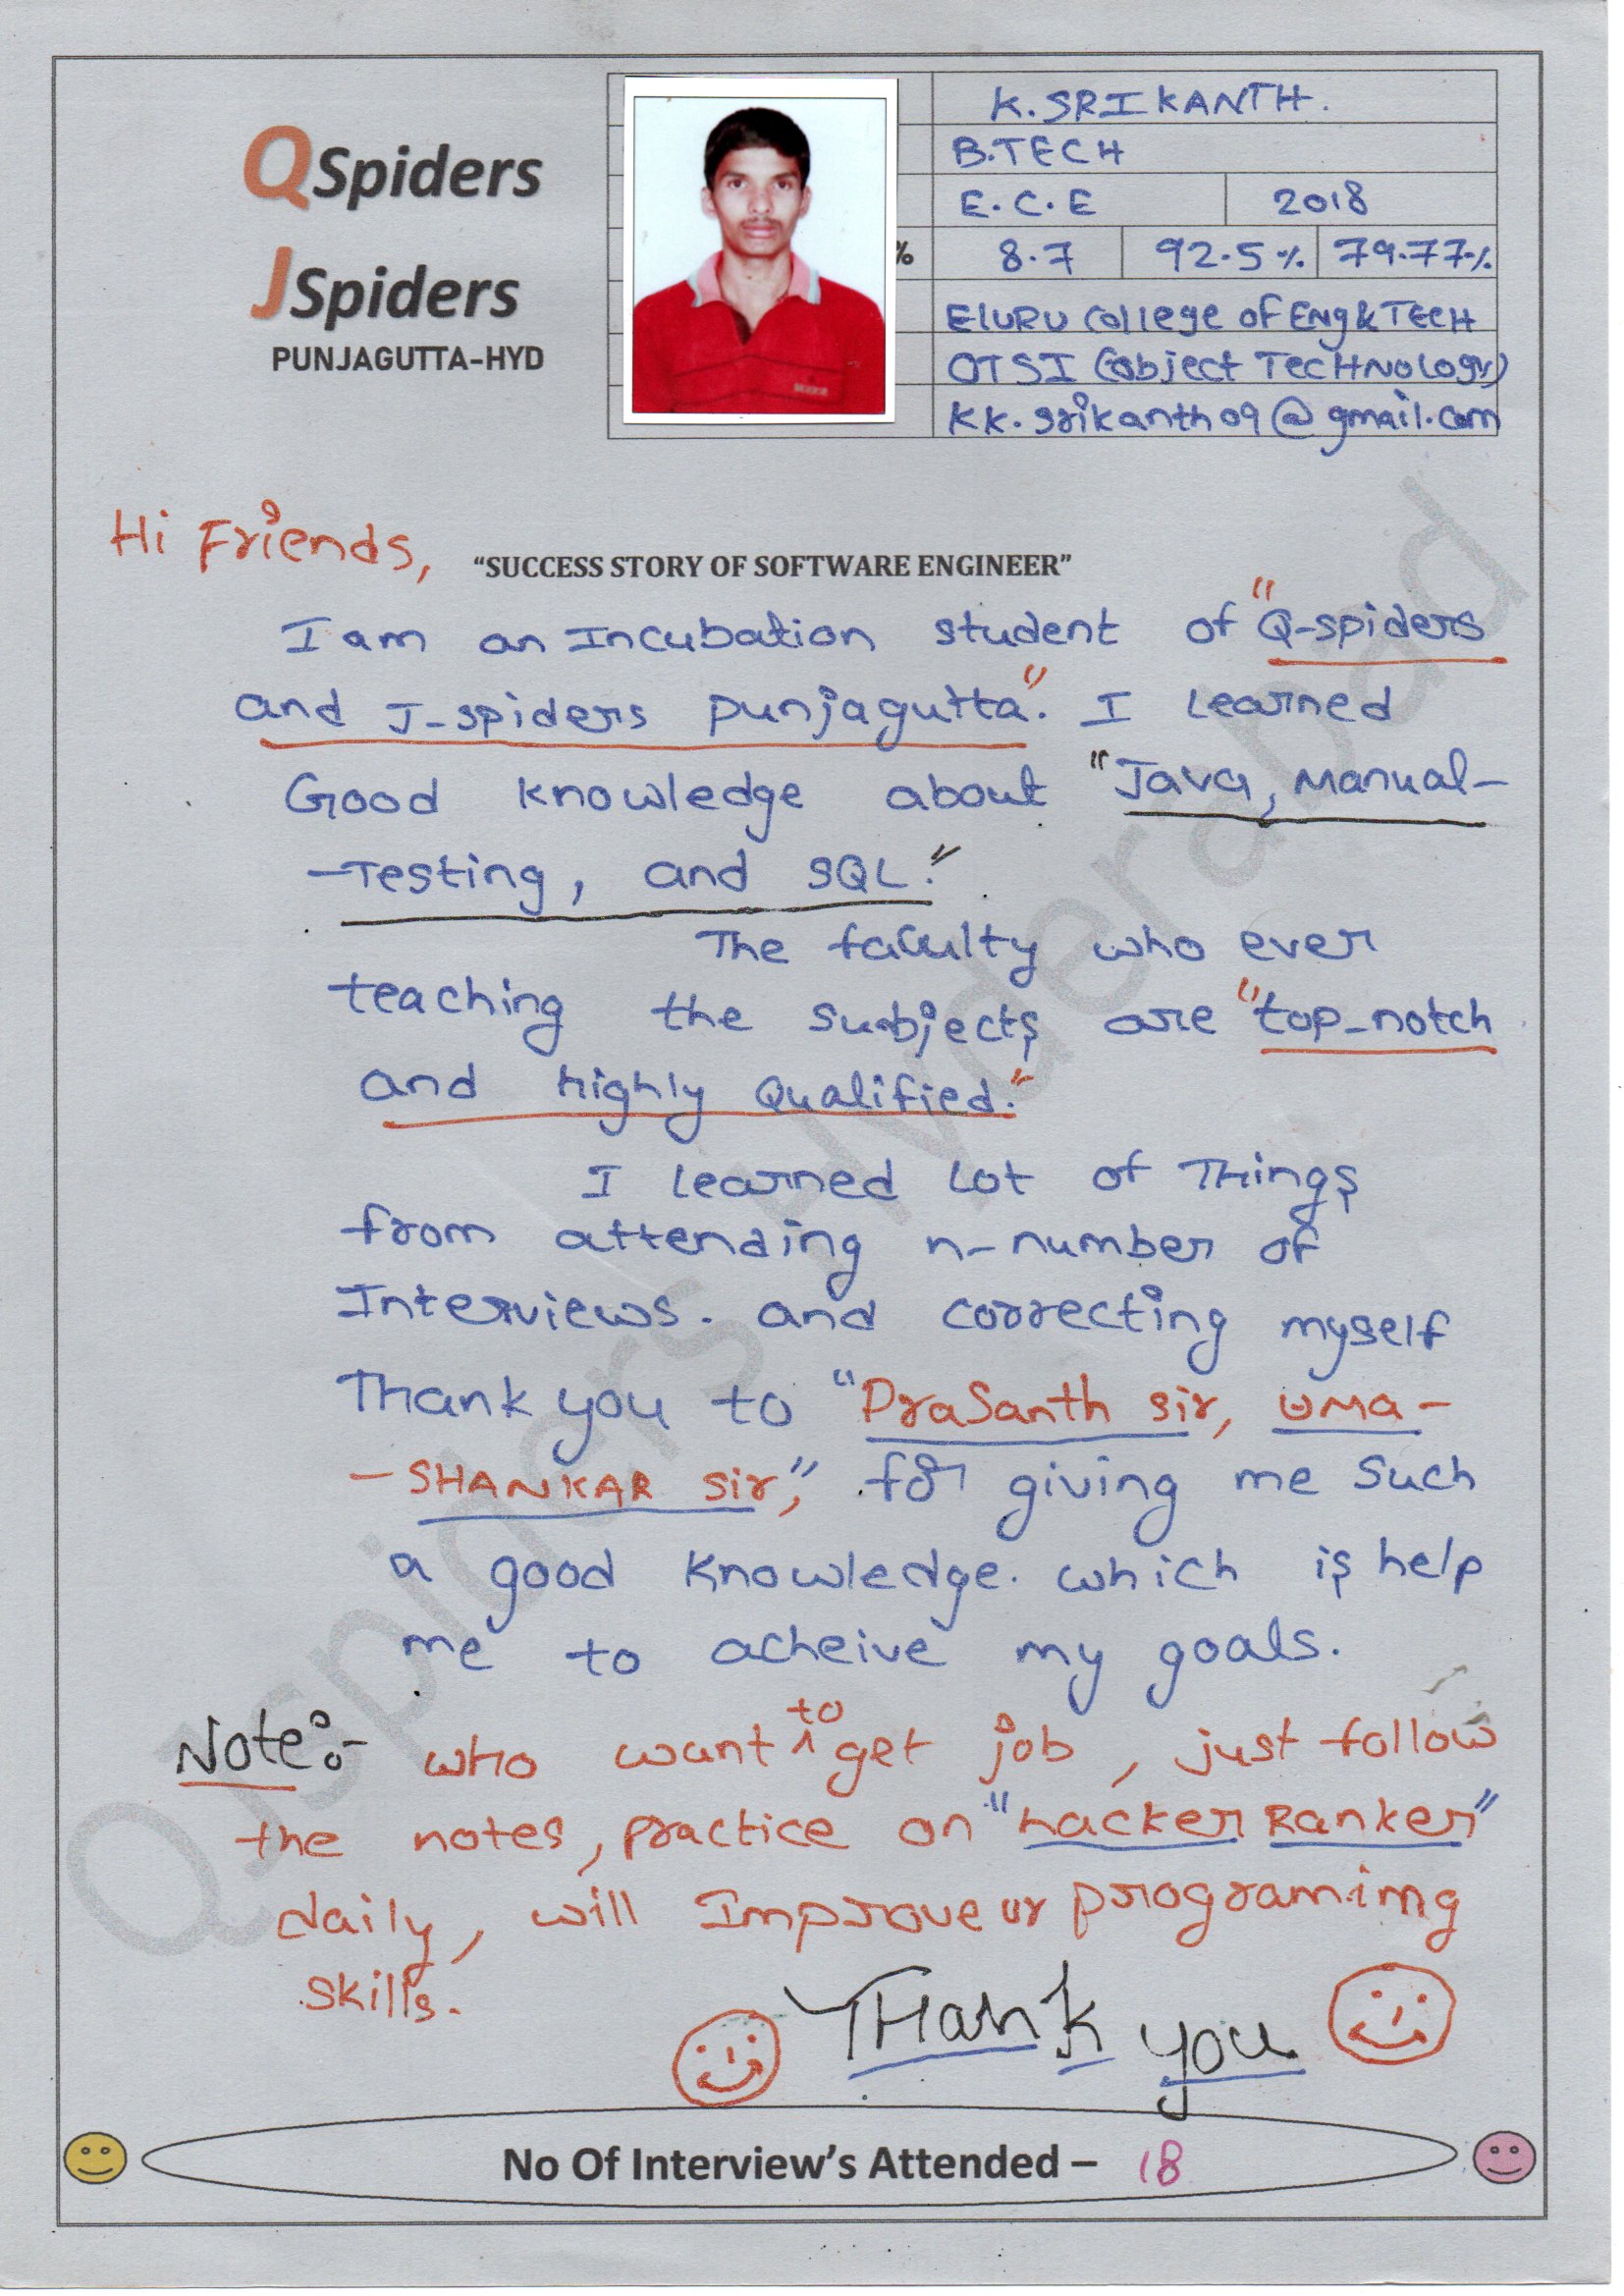 QSpiders
JSpiders
PUNJAGUTTA-HYD
K. SRIKANTH.
B.TECH
E.C.E 2018
% 8.7 92.5% 79.77%
Eluru College of Eng & TECH
OTSI (object TecHNology)
kk.srikanth09@gmail.com
Hi Friends,
"SUCCESS STORY OF SOFTWARE ENGINEER"
I am an Incubation student of "Q-spiders
and J-spiders punjagutta". I learned
Good knowledge about "Java, Manual-
-Testing, and SQL."
The faculty who ever
teaching the subjects are "top-notch
and highly Qualified."
I learned Lot of Things
from attending n-number of
Interviews. and correcting myself
Thank you to "PraSanth sir, UMA-
-SHANKAR sir," for giving me such
a good knowledge. which is help
me to acheive my goals.
Note:- who want to get job, just follow
the notes, practice on "hacker Ranker"
daily, will Improve ur programimg
skills.
THank you
No Of Interview's Attended – 18
QJspiders Hyderabad